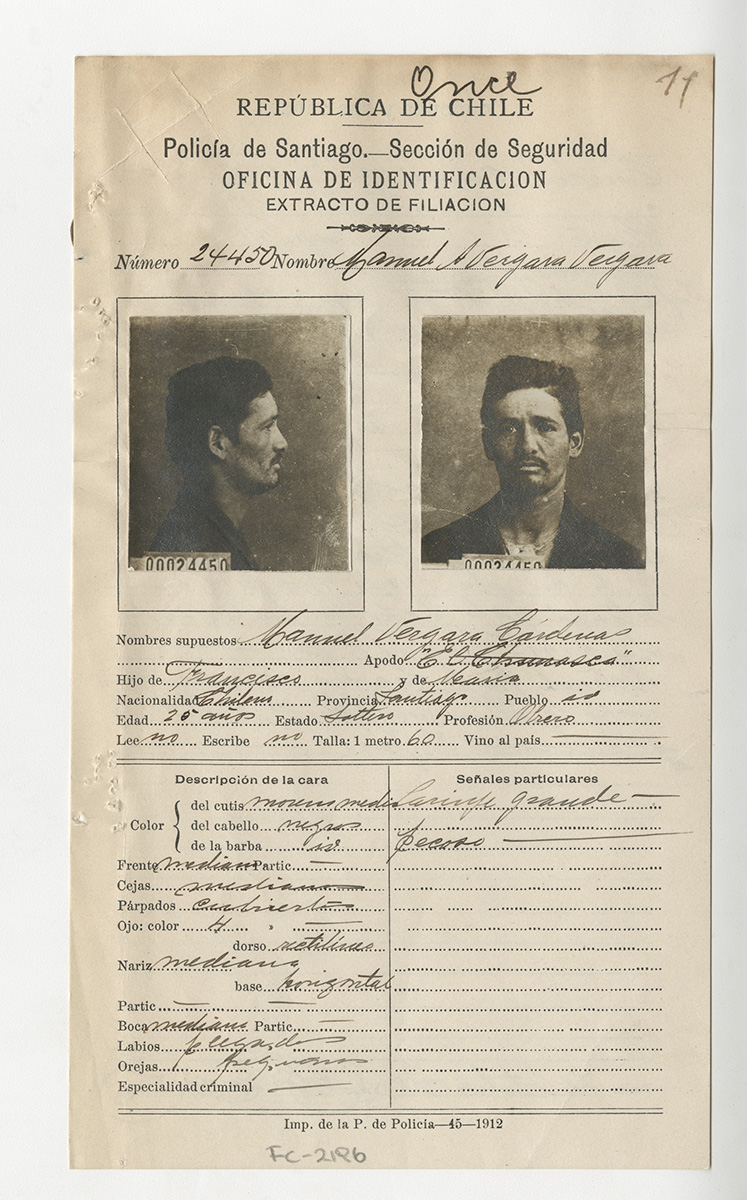 Once
11
REPÚBLICA DE CHILE
Policía de Santiago.—Sección de Seguridad
OFICINA DE IDENTIFICACION
EXTRACTO DE FILIACION
Número 24450 Nombre Manuel A Vergara Vergara
00024450
00024450
Nombres supuestos Manuel Vergara Cárdenas
Apodo "El
Hijo de Francisco y de María
Nacionalidad Chilena Provincia Santiago Pueblo id
Edad 25 años Estado Soltero Profesión Obrero
Lee no Escribe no Talla: 1 metro 60 Vino al país
Descripción de la cara
Señales particulares
Color
del cutis moreno medio
Laringe grande
del cabello negros
pecoso
de la barba id
Frente mediana Partic
Cejas medianas
Párpados cubiertos
Ojo: color 4 »
dorso rectilíneo
Nariz mediana
base horizontal
Partic
Boca mediana Partic
Labios plegados
Orejas
Especialidad criminal
Imp. de la P. de Policía—45—1912
FC-2186